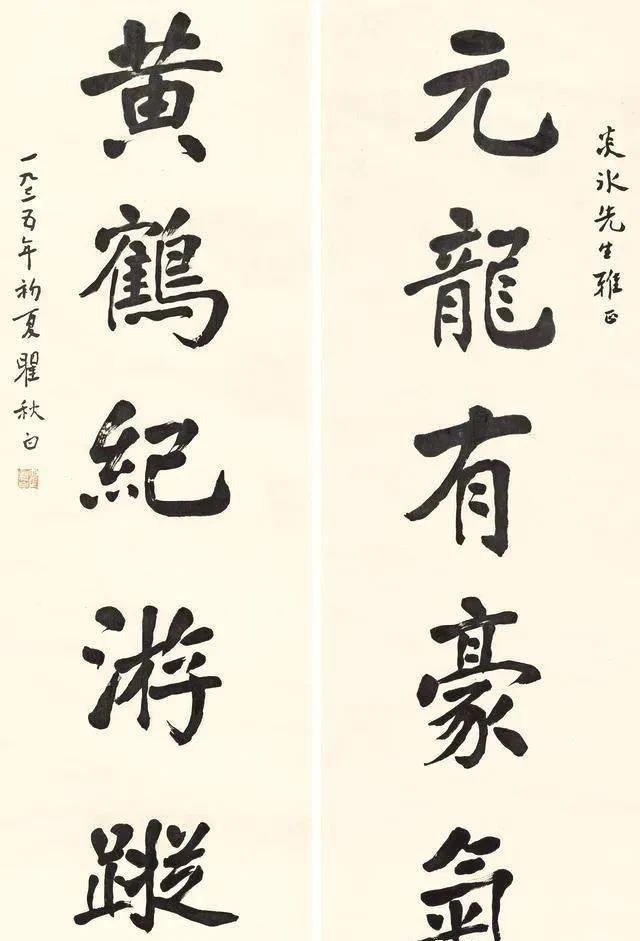 炎冰先生雅正
元龍有豪氣
黄鶴紀游蹤
一九三五年初夏瞿秋白